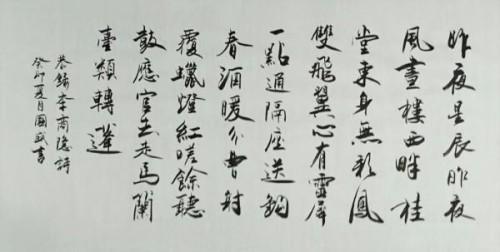 昨夜星辰昨夜
風畫樓西畔桂
堂東身無彩鳳
雙飛翼心有靈犀
一點通隔座送鉤
春酒暖分曹射
覆蠟燈紅嗟餘聽
鼓應官去走馬蘭
臺類轉蓬
恭錄李商隱詩
癸卯夏月國書